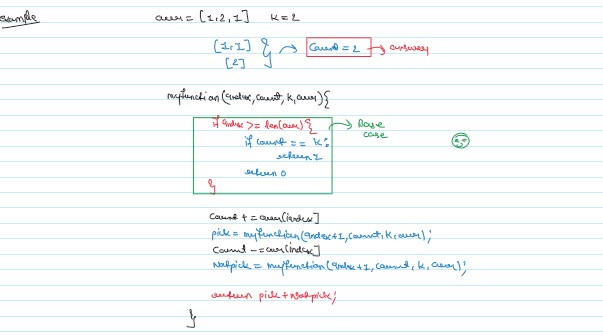 Example
arr = [1,2,1] k=2
[1,1] } → Count = 2 → answer
[2]
myfunction(index, count, k, arr){
if index >= len(arr){ → Base case
if count == k:
return 1
return 0
}
Count += arr[index]
pick = myfunction(index+1, count, k, arr);
Count -= arr[index]
Notpick = myfunction(index+1, count, k, arr);
return pick + Notpick;
}